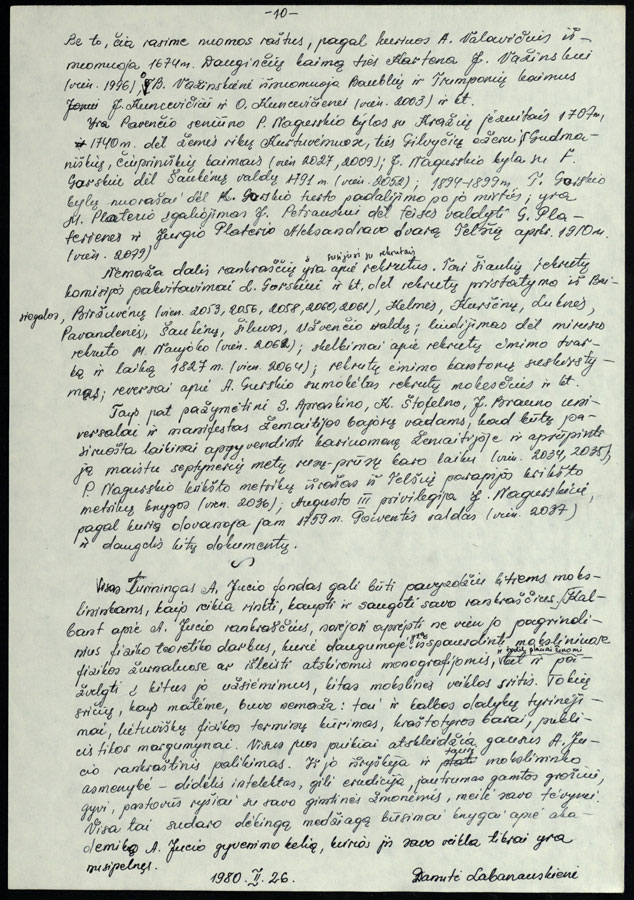 -10-
Be to, čia rasime nuomos raštus, pagal kuriuos A. Valavičius iš-
nuomuoja 1674 m. Dauginčių kaimą ties Kartena J. Važinskui
(vien. 1996) o B. Važinskienė išnuomuoja Baublių ir Trumponių kaimus
J. Kuncevičiui ir O. Kuncevičienei (vien. 2003) ir kt.
Yra Pavenčio seniūno P. Nagurskio bylos su Kražių jėzuitais 1707 m,
1740 m. dėl žemės ribų Kurtuvėnuose, ties Gilvyčių ežeru, Gudma-
niškių, Čiupriniškių kaimais (vien 2027, 2009); J. Nagurskio byla su F.
Gorskiu dėl Šaukėnų valdų 1791 m (vien. 2052); 1894-1899 m. T. Gorskio
bylų nuorašai dėl K. Gorskio turto padalijimo po jo mirties; yra
M. Platerio įgaliojimas J. Petrauskui dėl teisės valdyti G. Pla-
terienės ir Jurgio Platerio Aleksandravo dvarą Telšių apskr. 1910 m.
(vien. 2079)
susijusi su rekrutais
Nemaža dalis rankraščių yra apie rekrutus. Tai Šiaulių rekrutų
komisijos pakvitavimai L. Gorskiui ir kt. dėl rekrutų pristatymo iš Bai-
siogalos, Biržuvėnų (vien. 2053, 2056, 2058, 2060, 2061), Kelmės, Kuršėnų, Luknės,
Pavandenės, Šaukėnų, Šiluvos, Užvenčio valdų; liudijimas dėl mirusio
rekruto M. Naujoko (vien. 2062); skelbimai apie rekrutų ėmimo tvar-
ką ir laiką 1827 m. (vien. 2064); rekrutų ėmimo kantonų suskirsty-
mas; reversai apie A. Gurskio sumokėtus rekrutų mokesčius ir kt.
Taip pat pažymėtini S. Apraskino, K. Štofelno, J. Brauno uni-
versalai ir manifestas Žemaitijos bajorų vadams, kad būtų pa-
siruošta laikinai apgyvendinti kariuomenę Žemaitijoje ir aprūpinti
ją maistu septynerių metų rusų-prūsų karo laiku (vien. 2034, 2035),
P. Nagurskio krikšto metrikų išrašas iš Telšių parapijos krikšto
metrikų knygos (vien. 2036); Augusto III privilegija J. Nagurskiui,
pagal kurią dovanoja jam 1759 m. Paiventės valdas (vien. 2037)
ir daugelis kitų dokumentų.
Visas turiningas A. Jucio fondas gali būti pavyzdžiu kitiems moks-
lininkams, kaip reikia rinkti, kaupti ir saugoti savo rankraščius. Kal-
bant apie A. Jucio rankraščius, norėjosi aprėpti ne vien jo pagrindi-
nius fiziko teoretiko darbus, kurie daugumoje yra išspausdinti moksliniuose
fizikos žurnaluose ar išleisti atskiromis monografijomis, ir todėl plačiai žinomi bet ir pa-
žvelgti į kitus jo užsiėmimus, kitas mokslinės veiklos sritis. Tokių
sričių, kaip matėme, buvo nemaža: tai ir kalbos dalykų tyrinėji-
mai, lietuviškų fizikos terminų kūrimas, kraštotyros barai, publi-
cistikos margumynai. Visus juos puikiai atskleidžia gausus A. Ju-
cio rankraštinis palikimas. Iš jo išryškėja ir tauri mokslininko
asmenybė – didelis intelektas, gili erudicija, jautrumas gamtos grožiui,
gyvi, pastovūs ryšiai su savo gimtinės žmonėmis, meilė savo tėvynei.
Visa tai sudaro dėkingą medžiagą būsimai knygai apie aka-
demiko A. Jucio gyvenimo kelią, kurios jis savo veikla tikrai yra
nusipelnęs.
1980. II. 26. Danutė Labanauskienė